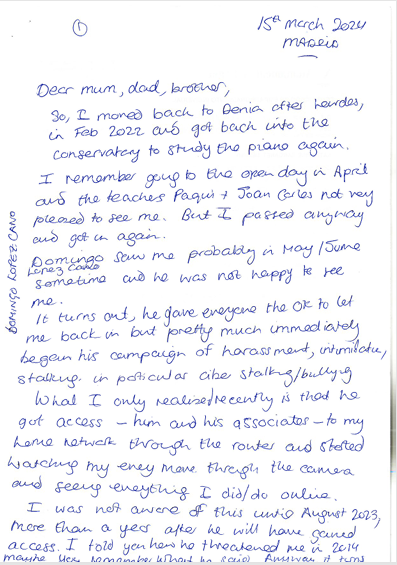 ①
15th March 2024
MADRID
Dear mum, dad, brother,
So, I moved back to Denia after Lourdes,
in Feb 2022 and got back into the
conservatory to study the piano again.
I remember going to the open day in April
and the teachers Paqui + Joan Carles not very
pleased to see me. But I passed anyway
and got in again.
Domingo saw me probably in May/June
Lopez Cano
sometime and he was not happy to see
me.
DOMINGO LOPEZ CANO
It turns out, he gave everyone the OK to let
me back in but pretty much immediately
began his campaign of harassment, intimidation,
stalking. in particular ciber stalking/bullying
What I only realised recently is that he
got access - him and his associates - to my
home network through the router and started
watching my every move through the camera
and seeing everything I did/do online.
I was not aware of this until August 2023,
more than a year after he will have gained
access. I told you how he threatened me in 2014
maybe you remember what he said. Anyway it turns